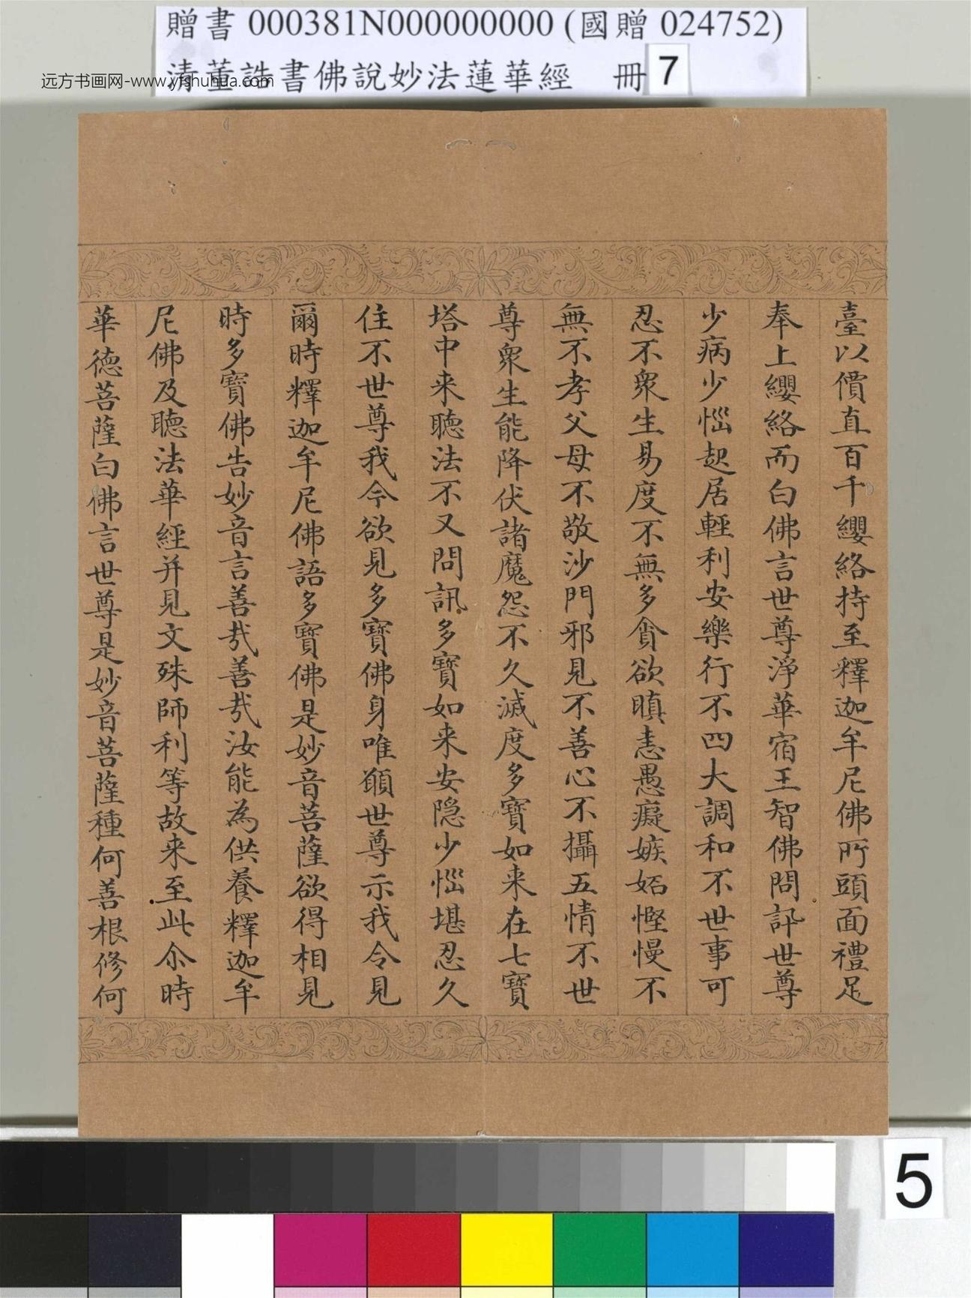 贈書 000381N000000000 (國贈 024752)
清董誥書佛說妙法蓮華經 冊 7
远方书画网-www.yfshuhua.com
臺以價直百千纓絡持至釋迦牟尼佛所頭面禮足
奉上纓絡而白佛言世尊淨華宿王智佛問訊世尊
少病少惱起居輕利安樂行不四大調和不世事可
忍不衆生易度不無多貪欲瞋恚愚癡嫉妬慳慢不
無不孝父母不敬沙門邪見不善心不攝五情不世
尊衆生能降伏諸魔怨不久滅度多寶如来在七寶
塔中来聽法不又問訊多寶如来安隱少惱堪忍久
住不世尊我今欲見多寶佛身唯願世尊示我令見
爾時釋迦牟尼佛語多寶佛是妙音菩薩欲得相見
時多寶佛告妙音言善哉善哉汝能為供養釋迦牟
尼佛及聽法華經并見文殊師利等故来至此尒時
華德菩薩白佛言世尊是妙音菩薩種何善根修何
5